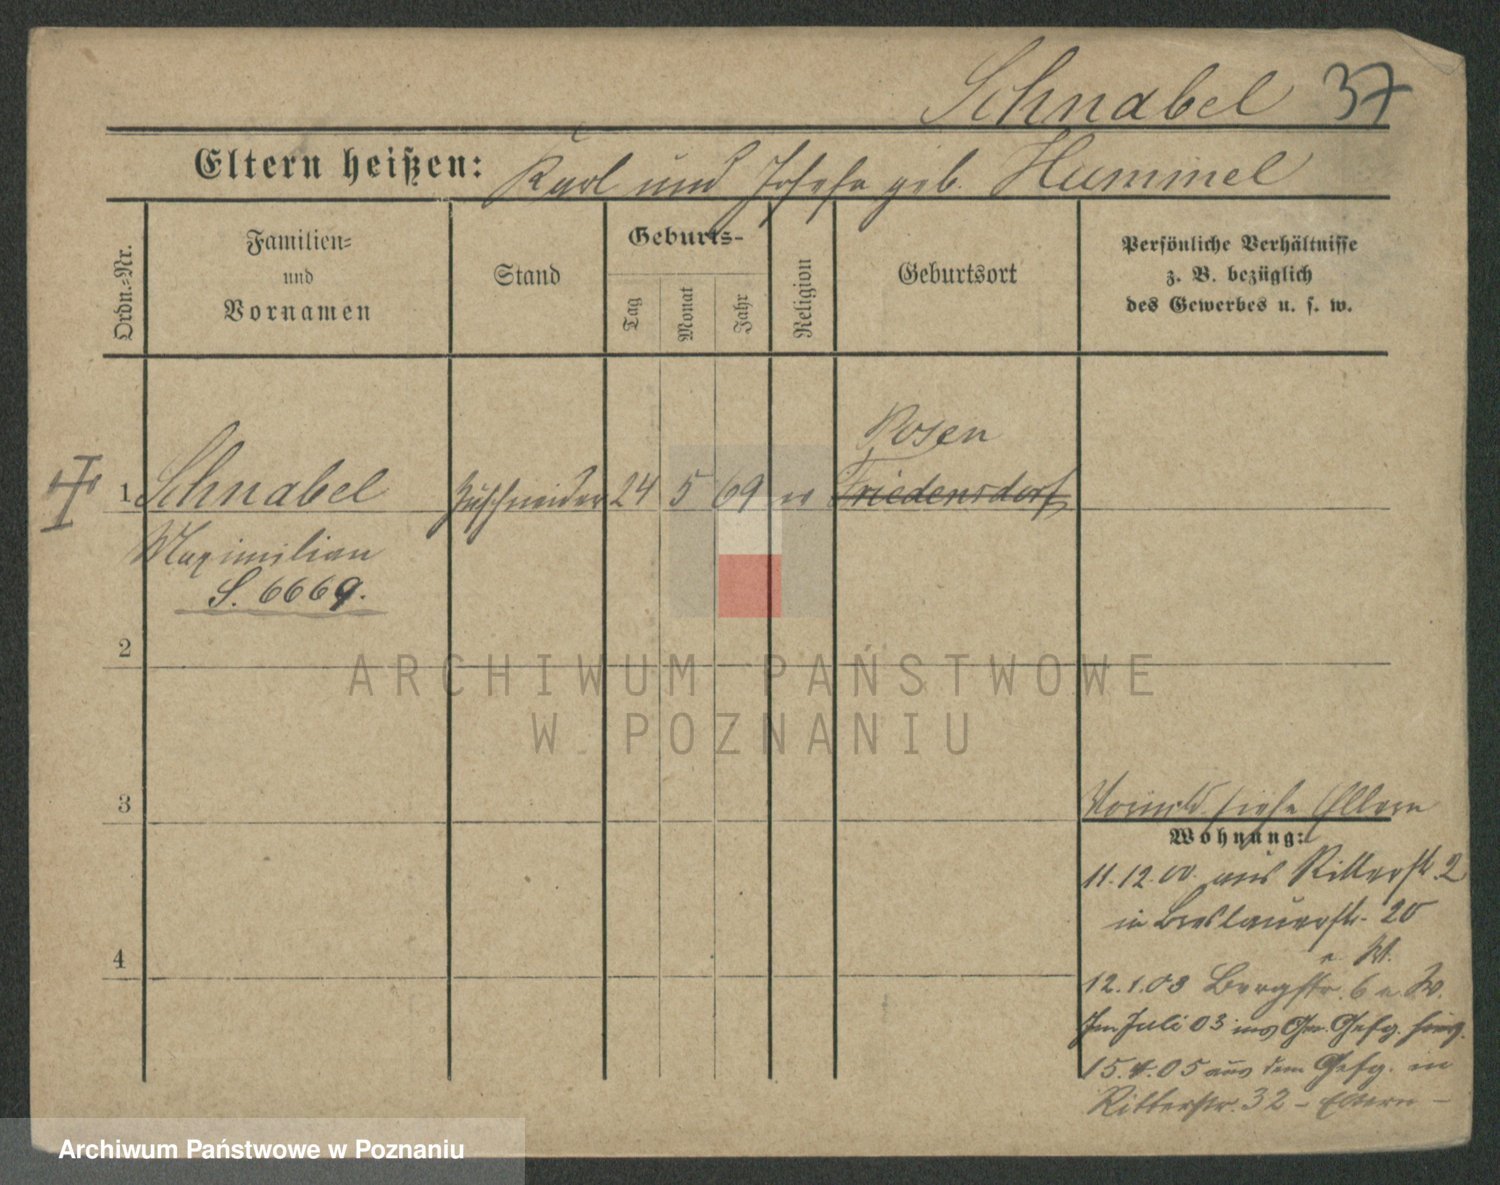 Schnabel 37
Eltern heißen: Karl und Josefa geb. Hummel
Ordn.-Nr.
Familien-
und
Vornamen
Stand
Geburts-
Tag
Monat
Jahr
Religion
Geburtsort
Persönliche Verhältnisse
z. B. bezüglich
des Gewerbes u. s. w.
Posen
1 Schnabel Zuschneider 24 5 69 Friedensdorf
Maximilian
S. 6669.
2
3
4
siehe Eltern
Wohnung:
11.12.00. aus Ritterstr. 2
in Breslauerstr. 20
12.1.03 Bergstr. 6
Im Juli 03 ins Gefg.
15.4.05 aus dem Gefg. in
Ritterstr. 32 - Eltern -
ARCHIWUM PAŃSTWOWE
W POZNANIU
Archiwum Państwowe w Poznaniu